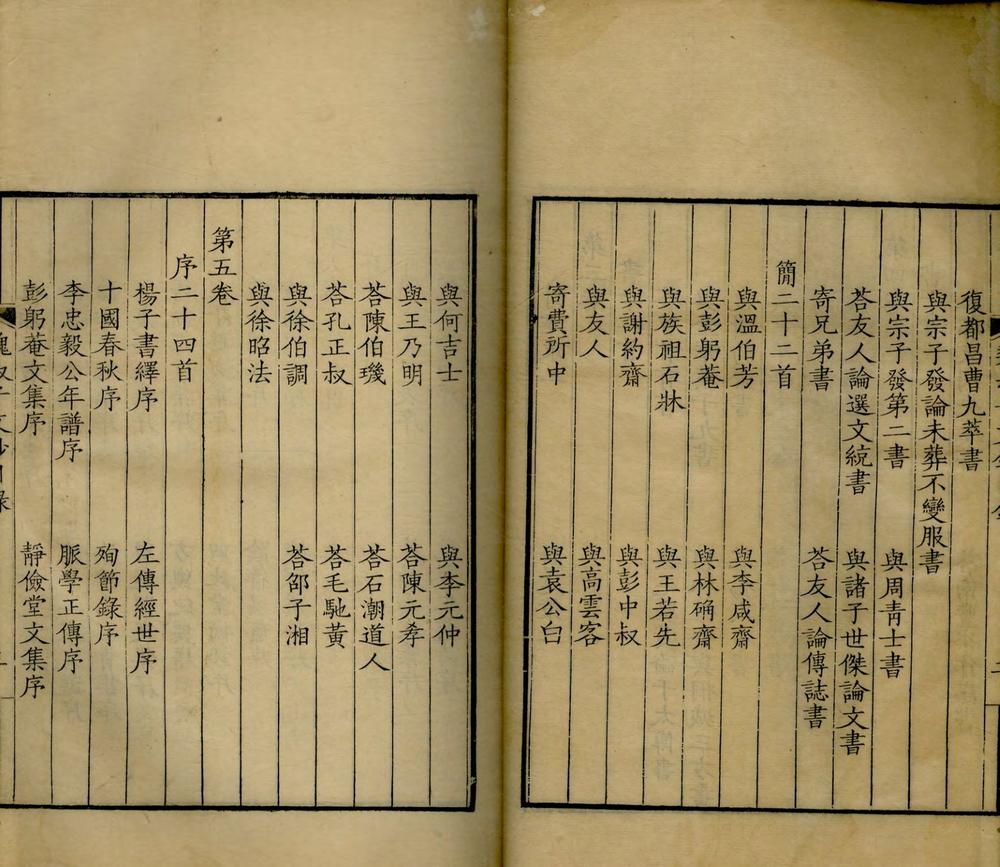 復都昌曹九萃書
與宗子發論未葬不變服書
與宗子發第二書 與周青士書
荅友人論選文統書 與諸子世傑論文書
寄兄弟書 荅友人論傳誌書
簡二十二首
與溫伯芳 與李咸齋
與彭躬菴 與林确齋
與族祖石牀 與王若先
與謝約齋 與彭中叔
與友人 與高雲客
寄費所中 與袁公白
與何吉士 與李元仲
與王乃明 荅陳元孝
荅陳伯璣 荅石潮道人
荅孔正叔 荅毛馳黃
與徐伯調 荅邵子湘
與徐昭法
第五卷
序二十四首
楊子書繹序 左傳經世序
十國春秋序 殉節錄序
李忠毅公年譜序 脈學正傳序
彭躬菴文集序 靜儉堂文集序